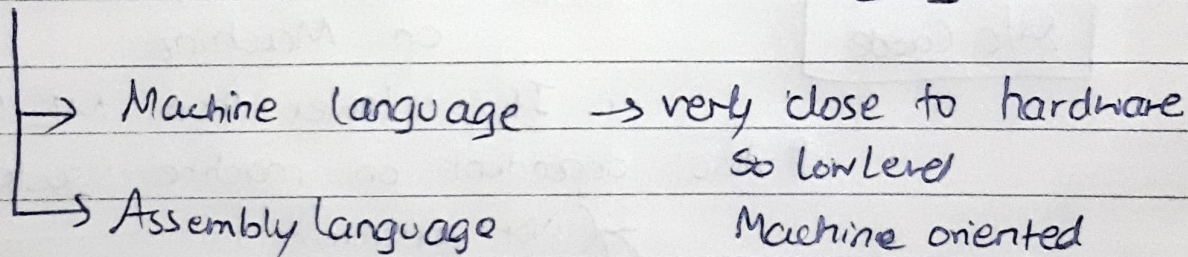 → Machine language → very close to hardware
so low level
→ Assembly language Machine oriented